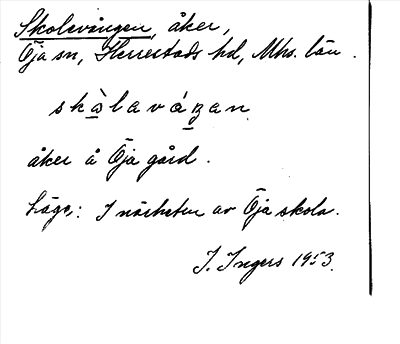 Skolevången, åker,
Öja sn, Herrestads hd, Mhs. län.
skàlaváŋan
åker å Öja gård.
Läge: I närheten av Öja skola.
I. Ingers 1953.